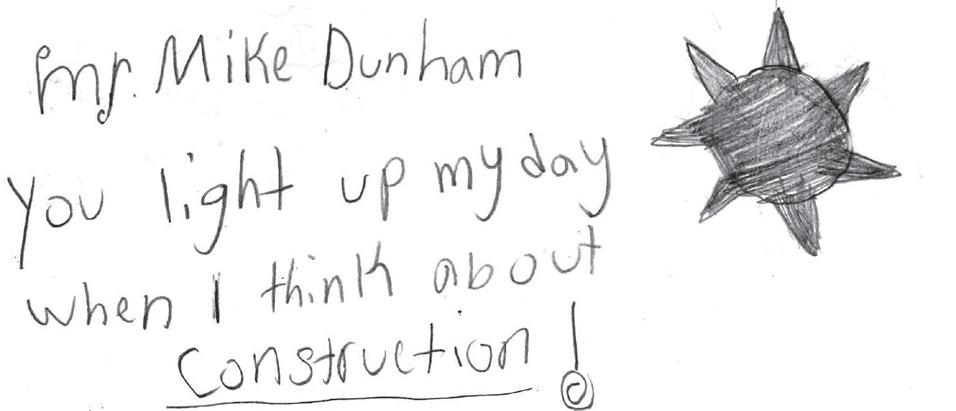 Mr. Mike Dunham
You light up my day
when I think about
Construction!